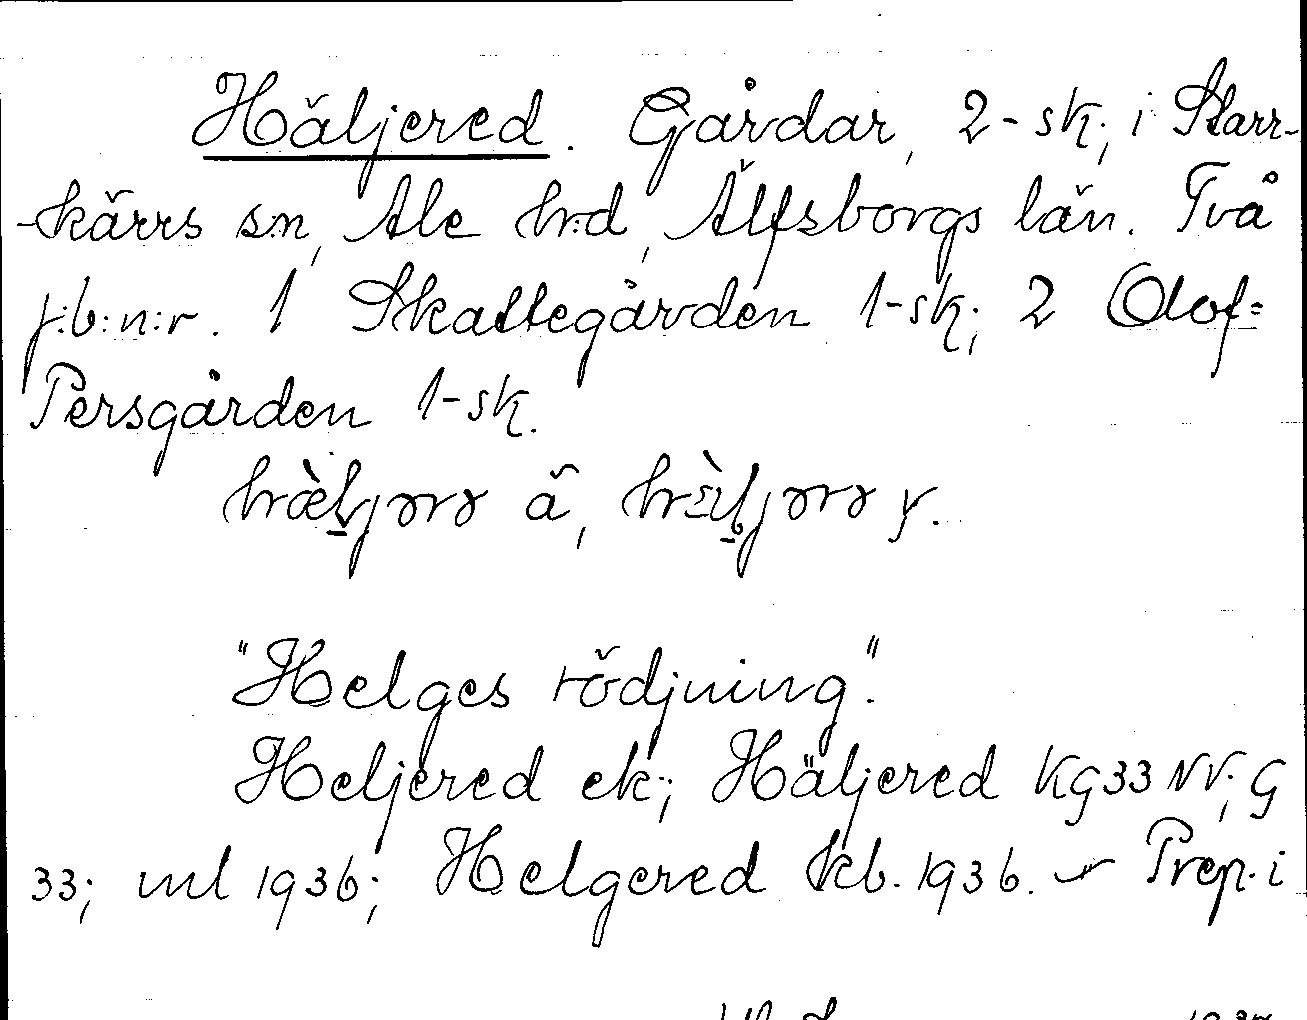 Häljered. Gårdar, 2-sk; i Starr-
kärrs sn, Ale hrd, Älfsborgs län. Två
j:b:n:r. 1 Skattegården 1-sk; 2 Olof=
Persgården 1-sk.
ä, y.
"Helges rödjning".
Heljered ek; Häljered KG33NV; G
33; ml 1936; Helgered kb. 1936. ~ Prep. i